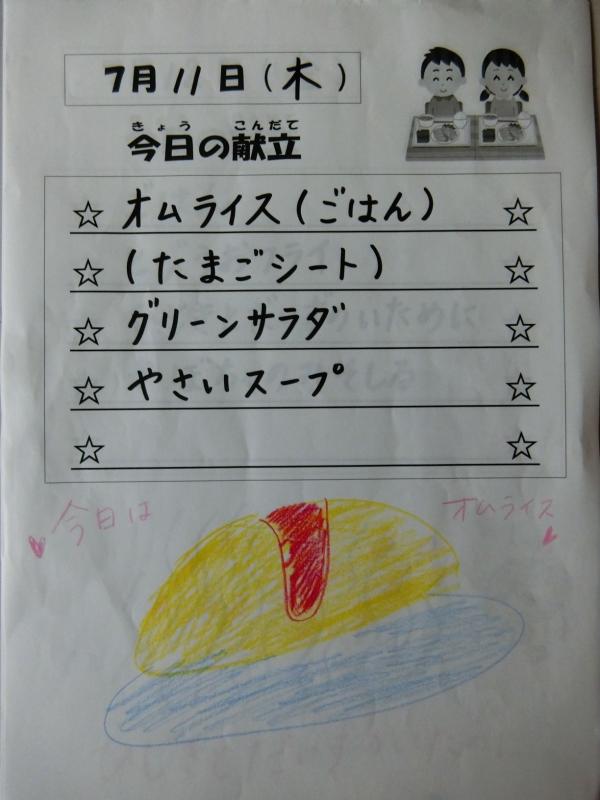 7月11日(木)
きょう こんだて
今日の献立
☆ オムライス(ごはん) ☆
☆ (たまごシート) ☆
☆ グリーンサラダ ☆
☆ やさいスープ ☆
☆ ☆
今日は オムライス